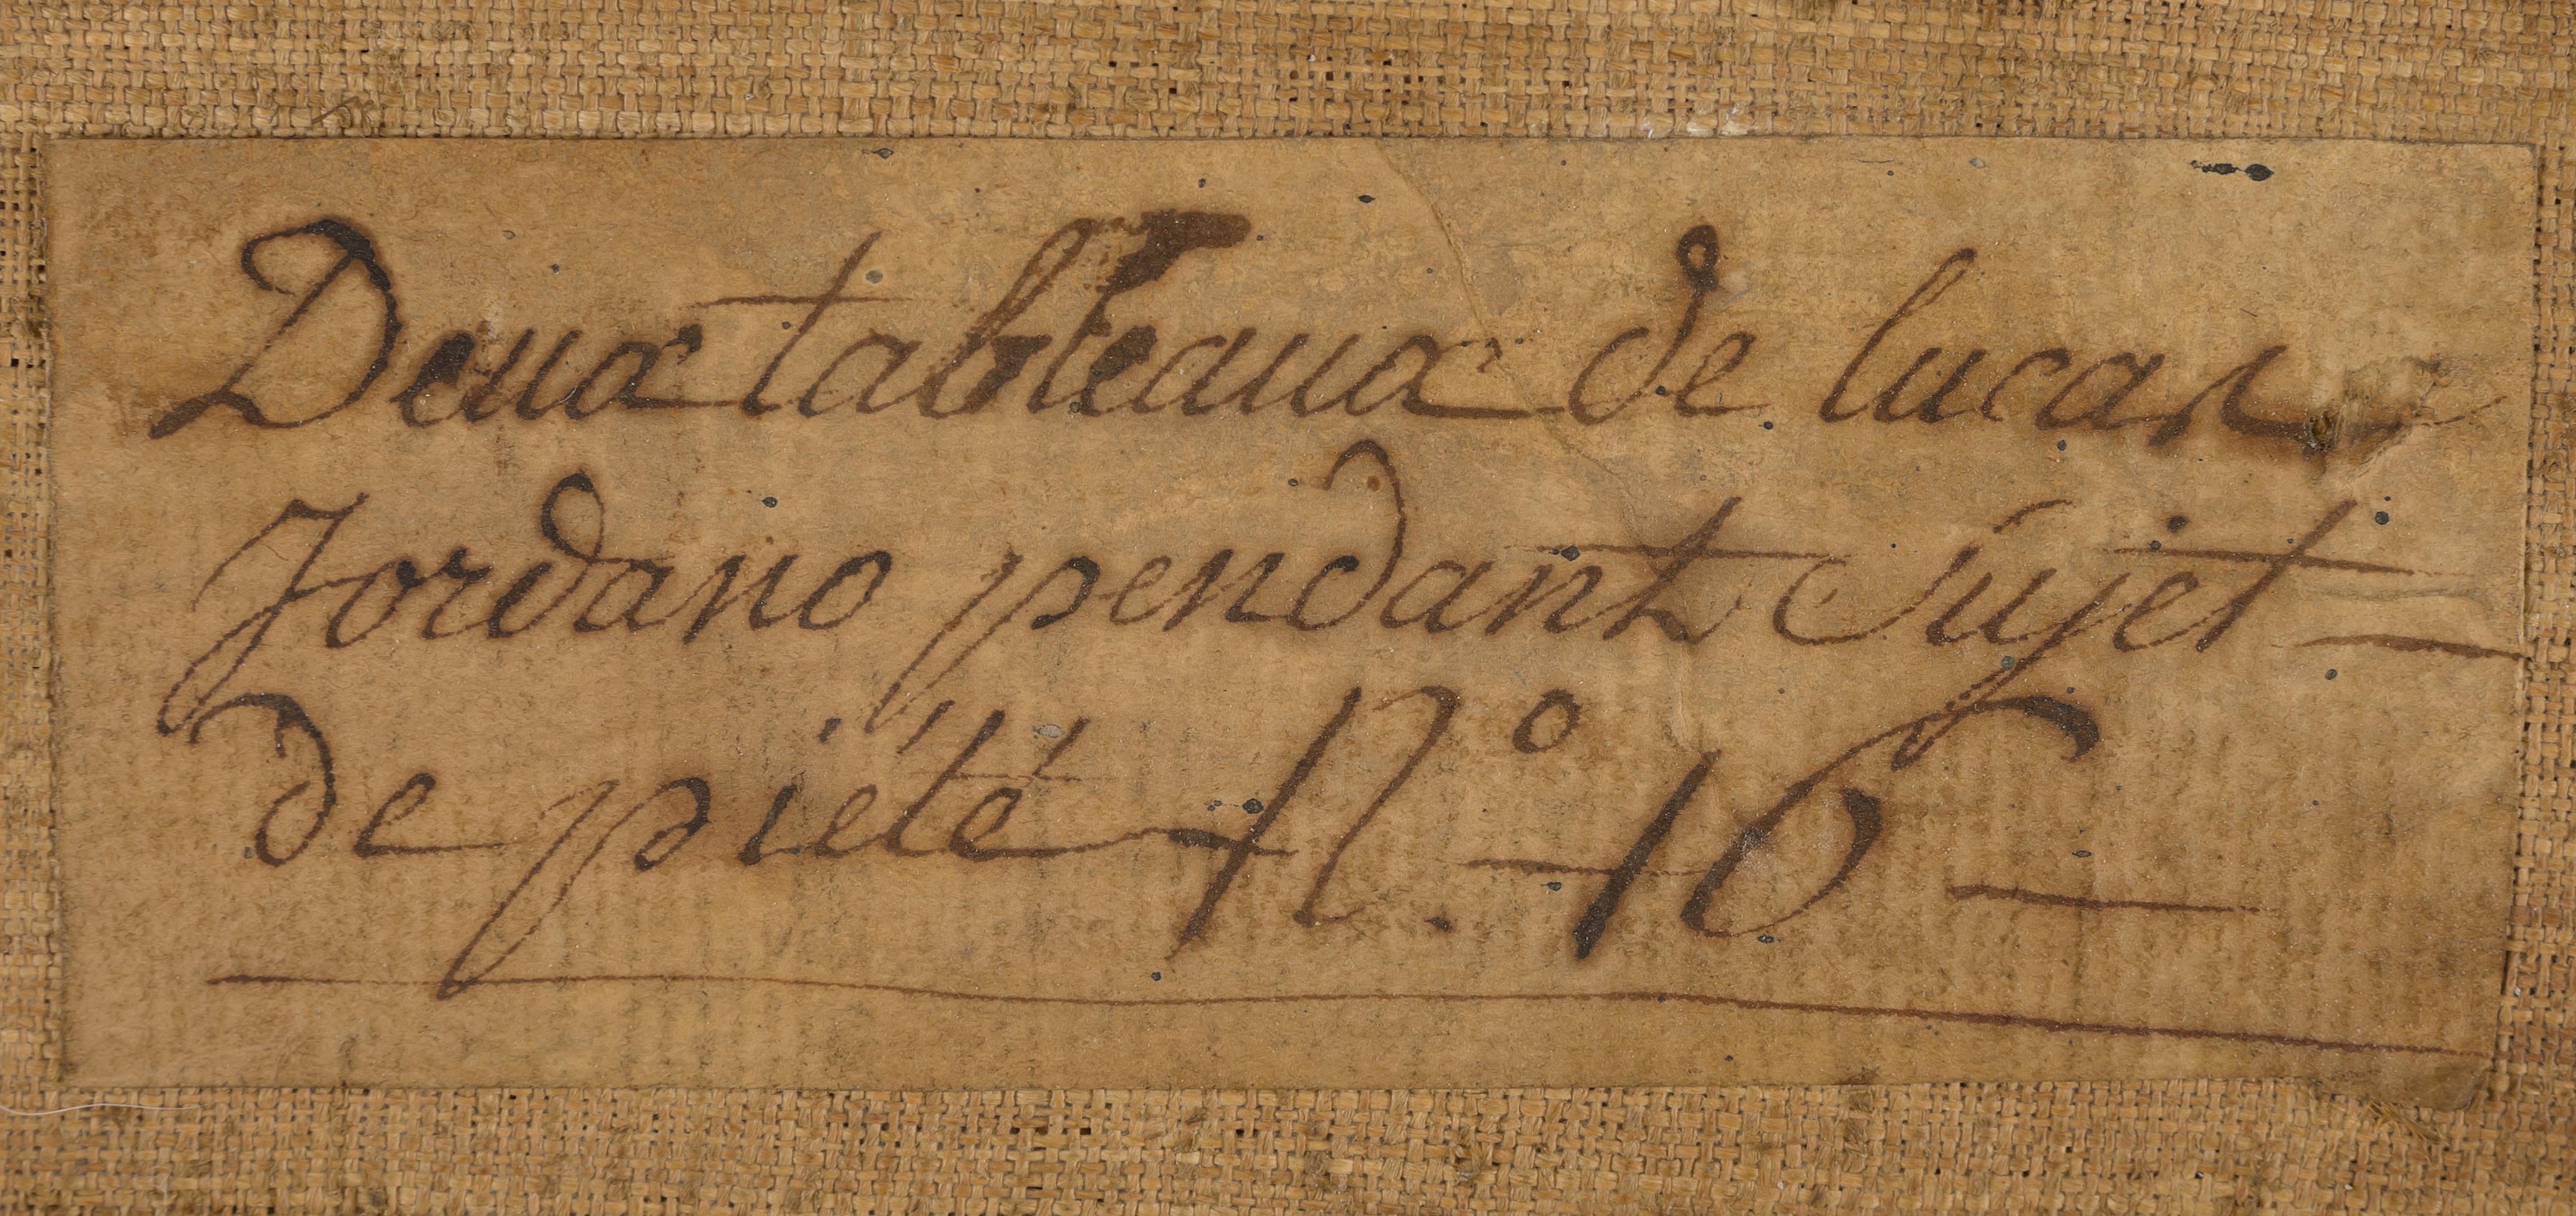 Deux tableaux de lucas
Jordano pendant Sujet
de piété N.º 16